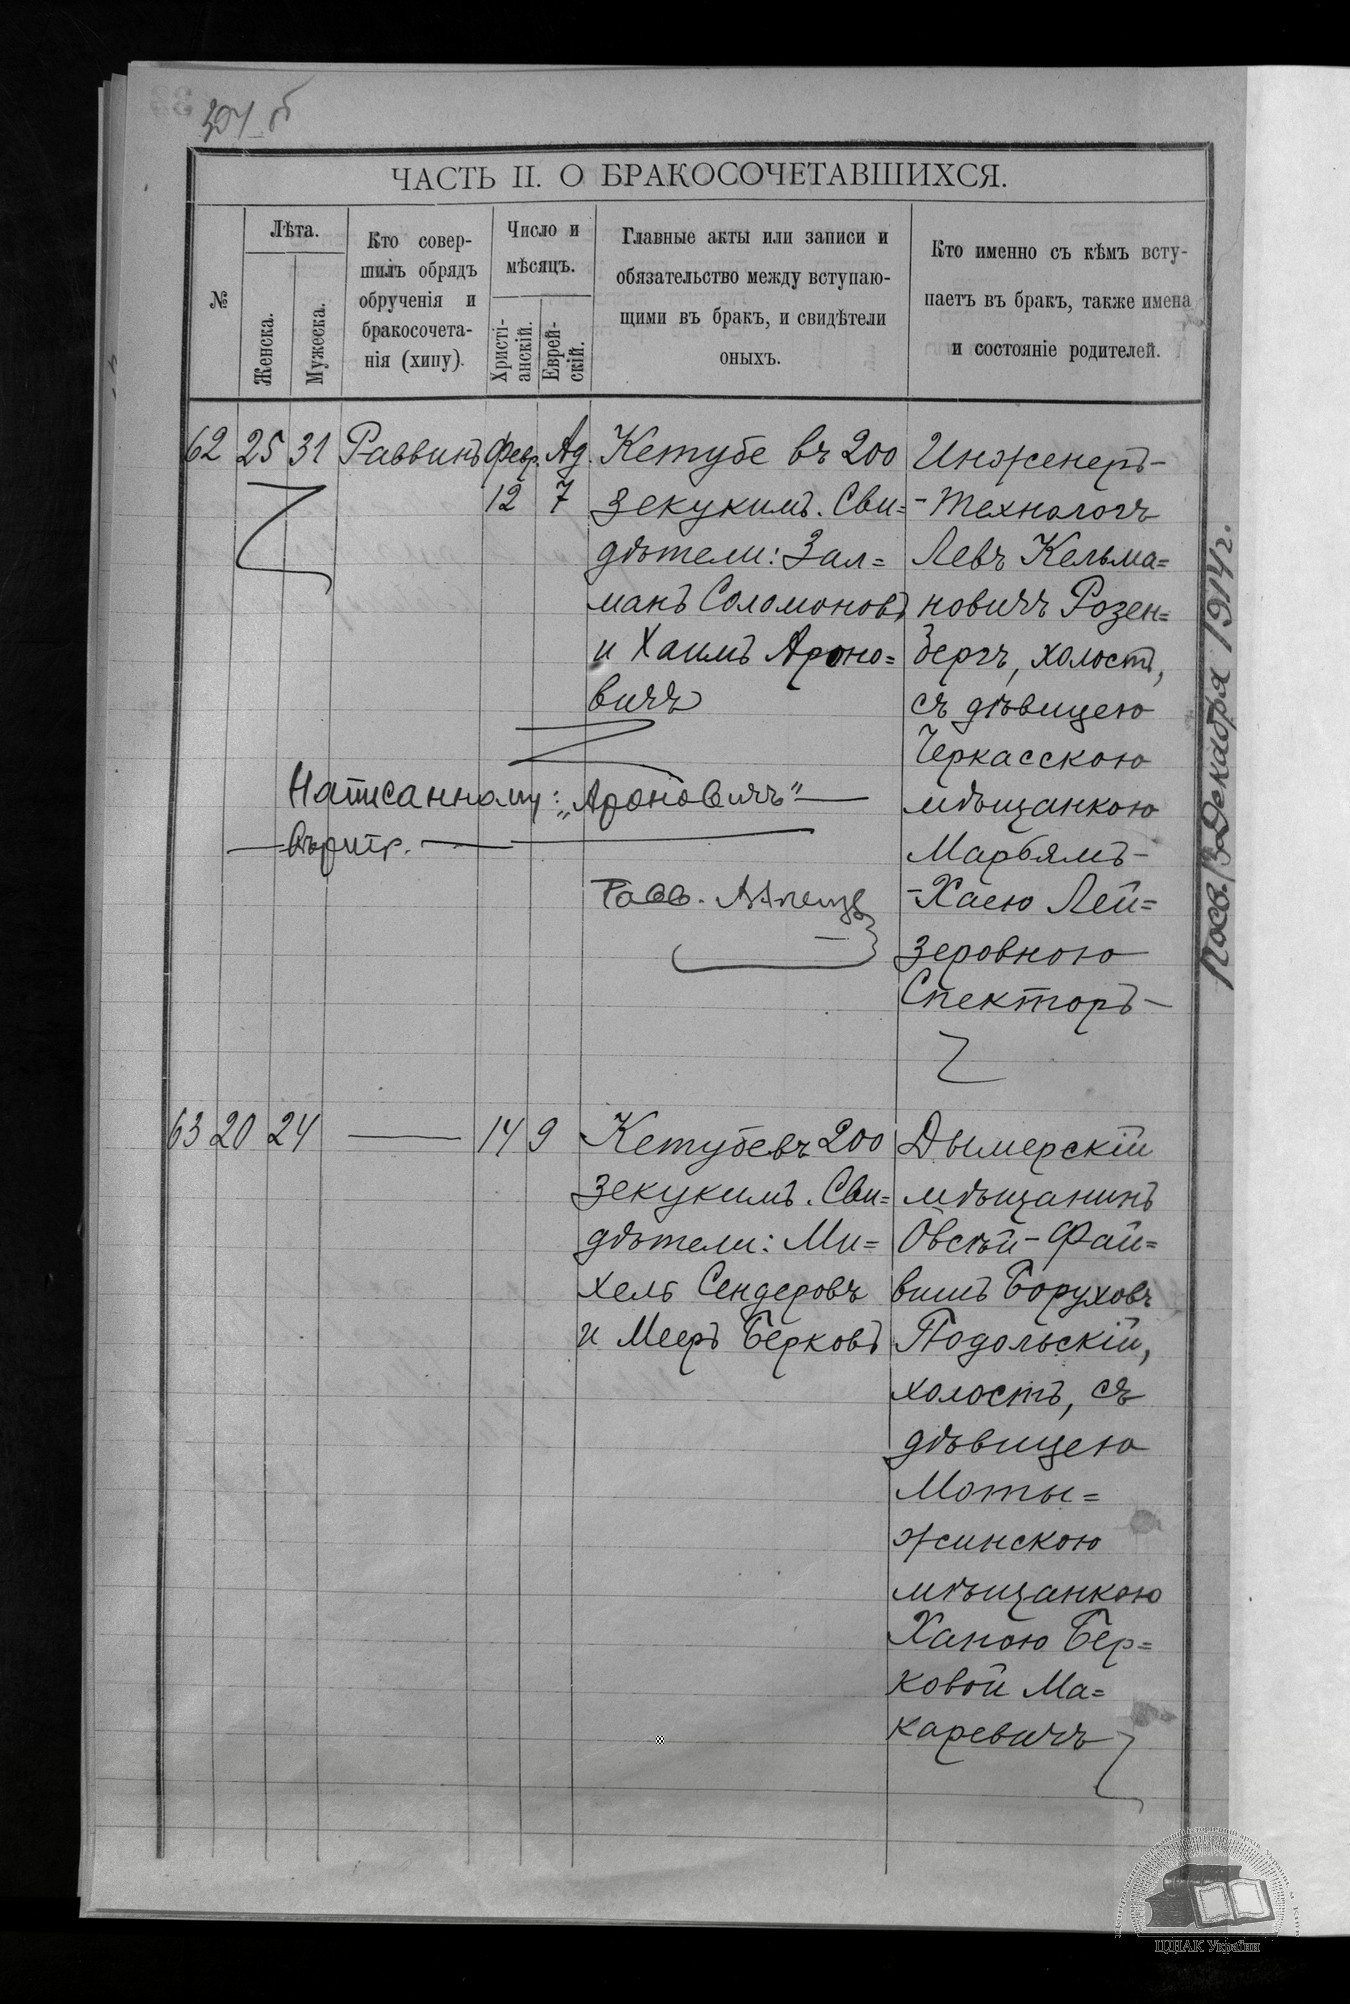 ЧАСТЬ II. О БРАКОСОЧЕТАВШИХСЯ.
№
Лѣта.
Женска.
Мужеска.
Кто совер-
шилъ обрядъ
обрученія и
бракосочета-
нія (хипу).
Число и
мѣсяцъ.
Христі-
анскій.
Еврей-
скій.
Главные акты или записи и
обязательство между вступаю-
щими въ бракъ, и свидѣтели
оныхъ.
Кто именно съ кѣмъ всту-
паетъ въ бракъ, также имена
и состояніе родителей.
62 25 31 Раввинъ Февр. Ад.
12 7
Кетубе въ 200
зекукимъ. Сви=
дѣтели: Зал=
манъ Соломоновъ
и Хаимъ Ароно=
вичъ
Написанному: „Ароновичъ"—
Раво.
Инженеръ-
-Технологъ
Левъ Кельма=
новичъ Розен=
бергъ, холостъ,
съ дѣвицею
Черкасскою
мѣщанкою
Марьямъ-
-Хаею Лей=
зеровною
Спекторъ—
63 20 24 — 14 9
Кетубе въ 200
зекукимъ. Сви=
дѣтели: Ми=
хель Сендеровъ
и Мееръ Берковъ
Дымерскій
мѣщанинъ
Овсѣй-Фай=
вишъ Боруховъ
Подольскій,
холостъ, съ
дѣвицею
Моты=
жинскою
мѣщанкою
Ханою Бер=
ковой Ма=
каревичъ
Декабря 1914 г.
ЦДІАК України